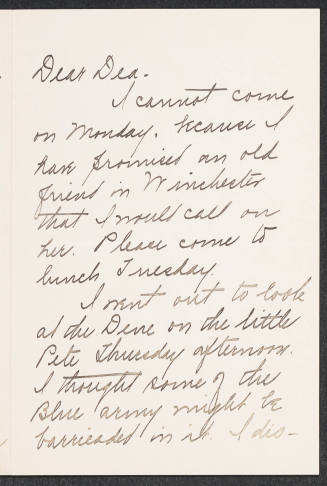 Dear Dea.
I cannot come
on Monday. because I
have promised an old
friend in Winchester
that I would call on
her. Please come to
lunch Tuesday.
I went out to look
at the Dene on the little
Pete Thursday afternoon.
I thought some of the
Blue army might be
barricaded in it. I dis-